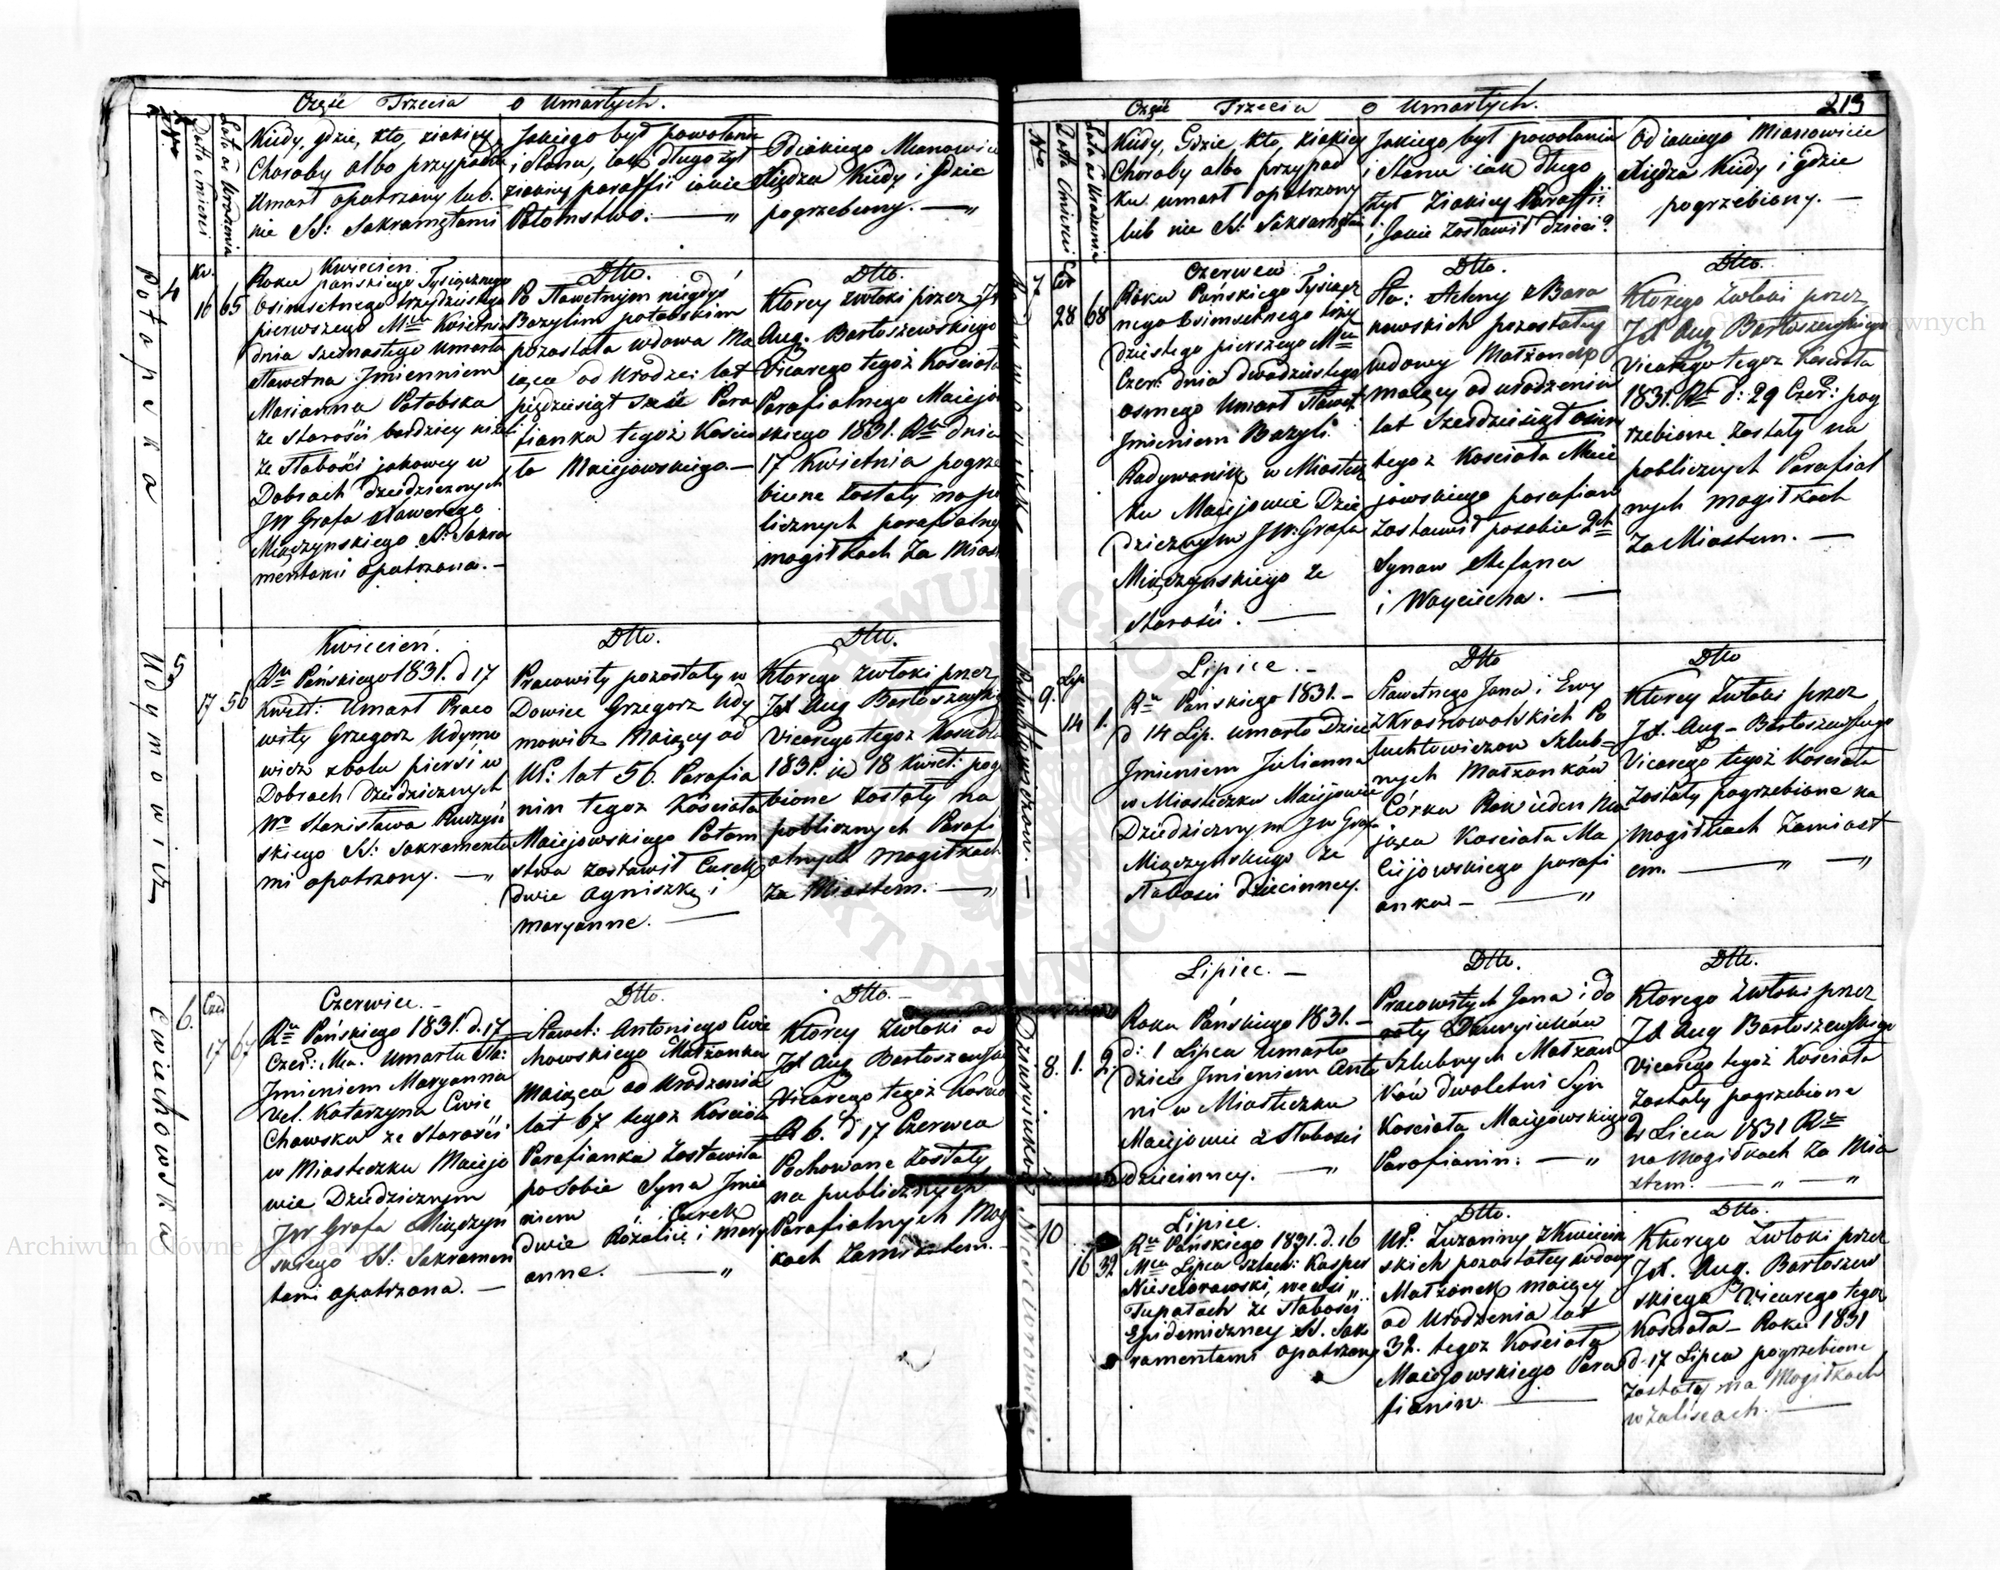 Część Trzecia o Umarłych.
Nro
Data śmierci
Lata od Urodzenia
Kiedy, gdzie, kto, ziakiey
Choroby albo przypadku
Umarł opatrzony lub
nie SS: Sakramętami
Jakiego był powołania
i Stanu, iak długo żył
ziakiey paraffii iakie
Potomstwo. —〃
Odiakiego Mianowicie
Xiędza Kiedy i gdzie
pogrzebiony. —〃
Potopska
4
Kw.
16
65
Kwiecień
Roku pańskiego Tysiącznego
Osimsetnego trzydziestego
pierwszego Mca Kwietnia
dnia szesnastego Umarła
sławetna Jmienniem
Marianna Potobska
ze starości bardziey niże
ze słabości jakowey w
Dobrach dziedzicznych
JW Grafa Xawerego
Miączynskiego SS: Sakra
mentami opatrzona. —
Dtto.
Po Sławetnym niegdyś
Bazylim potobskim
pozostała wdowa Ma
iąca od Urodze: lat
piędziesiąt sześć Para
fianka tegoż Koscio
ła Maiejowskiego —
Dtto.
Ktorey zwłoki przez Jx
Aug. Bartoszewskiego
Vicarego tegoż Kościoła
Parafialnego Maiejow
skiego 1831. Ru dnia
17 Kwietnia pogrze
bione zostały na pu
licznych parafialny
mogiłkach za Mias
Udymowicz
5
17
56
Kwiecień.
Ru Pańskiego 1831. d 17
Kwiet: Umarł Praco
wity Grzegorz Udymo
wicz zbolu piersi w
Dobrach dziedzicznych
Wo Stanisława Ruczyń
skiego SS: Sakramenta
mi opatrzony. —〃
Dtto.
Pracowity pozostały w
Dowiec Grzegorz Udy
mowicz Maiący od
Ur: lat 56. Parafia
nin tegoż Kościoła
Maiejowskiego Potom
stwa zostawił Curek
dwie Agniszkę i
maryanne. —
Dtto.
Ktorego zwłoki przez
JX Aug Bartoszewskiego
Vicarego tegoż Kościoła
1831. 18 Kwiet: pog
bione zostały na
poblicznych Parafi
alnych mogiłkach
za Miastem. —〃
Cwiechowska
6.
Czer
17
67
Czerwiec. —
Ru Pańskiego 1831. d. 17
Czer: Mca. Umarła Sła:
Jmieniem Maryanna
vel. Katarzyna Cwie
Chowska ze starości
w Miasteczku Maiejo
wie Dziedzicznym
JW Grafa Miączyń
skiego SS: Sakramen
tami opatrzona. —
Dtto.
Sławet: Antoniego Cwie
chowskiego Małżonka
Maiąca od Urodzenia
lat 67 tegoż Kościoła
Parafianka zostawiła
po sobie Syna Jmie
niem Curek
dwie Rózalię i Mary
anne. —〃
Dtto. —
Ktorey zwłoki od
JX Aug Bartoszewskiego
Vicarego tegoż Kościo
R b. d 17 Czerwca
Pochowane zostały
na publicznych
Parafialnych Mog
kach zamiastem. —
Część Trzecia o Umarłych.
213
Nro
Data Śmierci
Lata od Urodzenia
Kiedy, Gdzie, kto, ziakiey
Choroby albo przypad
ku umarł opatrzony
lub nie SS: Sakramętami
Jakiego był powołania
i Stanu iak długo
żył Ziakiey Paraffii
i Jakie zostawił dzieci?
Od iakiego Mianowicie
Xiędza Kiedy i gdzie
pogrzebiony. —
7
Czer
28
68
Czerwca
Roku Pańskiego Tysiącz
nego Osimsetnego trzy
dziestego pierszego Mca
Czer: dnia dwadziestego
osmego Umarł sławet.
Jmieniem Bazyli
Radywoniuk w Miastecz
ku Maiejowie Dzie
dzicznym JW: Grafa
Miączynskiego ze
starości. —
Dtto.
Sła: Heleny z Bara
nowskich pozostałey
wdowy Małżonek
maiący od urodzenia
lat Sześdziesiąt osim
tegoż Kościoła Maie
jowskiego parafian
zostawił posobie 2ch
Synow Stefana
i Woyciecha. —
Dtto.
Ktorego zwłoki przez
JX Aug Bartoszewskiego
Vicarego tegoż Kościoła
1831. Ru d: 29 Czer: pog
rzebione zostały na
poblicznych Parafial
nych mogiłkach
za Miastem. —
9.
Lip
14
1.
Lipiec. —
Ru Pańskiego 1831. —
d 14 Lip. umarło Dziec
Jmieniem Julianna
w Miasteczku Maiejowie
Dziedzicznym JW Grafa
Miączyńskiego ze
słabości dziecinney.
Dtto
Sławetnego Jana i Ewy
z Krasnowolskich Po
łuchtowiczow Szlub=
nych Małżonków
Córka Rok ieden Ma
jąca Kościoła Ma
ciejowskiego parafi
anka — 〃
Dtto
Ktorey zwłoki przez
JX. Aug — Bartoszewskiego
Vicarego tegoż Kościoła
zostały pogrzebione na
mogiłkach zamiast
em. — 〃 — 〃
8.
1.
2.
Lipiec. —
Roku Pańskiego 1831. —
d: 1 Lipca umarło
dziecie Jmieniem Anto
ni w Miasteczku
Maiejowie z słabości
dziecinney. —〃
Dtto.
Pracowitych Jana i do
roty
Szlubnych Małżon
ków dwoletni Syn
Kościoła Maiejowskiego
Parafianin: —〃
Dtto.
Ktorego zwłoki przez
JX Aug Bartoszewskiego
Vicarego tegoż Kościoła
zostały pogrzebione
2 Lica 1831 Ru
na Mogiłkach za Mia
stem. — 〃 — 〃
10
16
32
Lipiec.
Ru Pańskiego 1831. d. 16
Mca Lipca szlach: Kasper
Niesciorawski, we wsi
Tupałach ze słabości
Epidemiczney SS. Sak
ramentami opatrzony
Dtto.
Ur: Zuzanny z Kwiecin
skich pozostałey wdowy
Małżonek maiący
od Urodzenia lat
32. tegoż Kościoła
Maiejowskiego Para
fianin. —
Dtto.
Ktorego zwłoki przez
JX. Aug. Bartoszew
skiego Vicarego tegoż
Kościoła — Roku 1831
d. 17 Lipca pogrzebione
zostały na Mogiłkach
w zaliscach. —
Archiwum Główne Akt Dawnych
Archiwum Główne Akt Dawnych